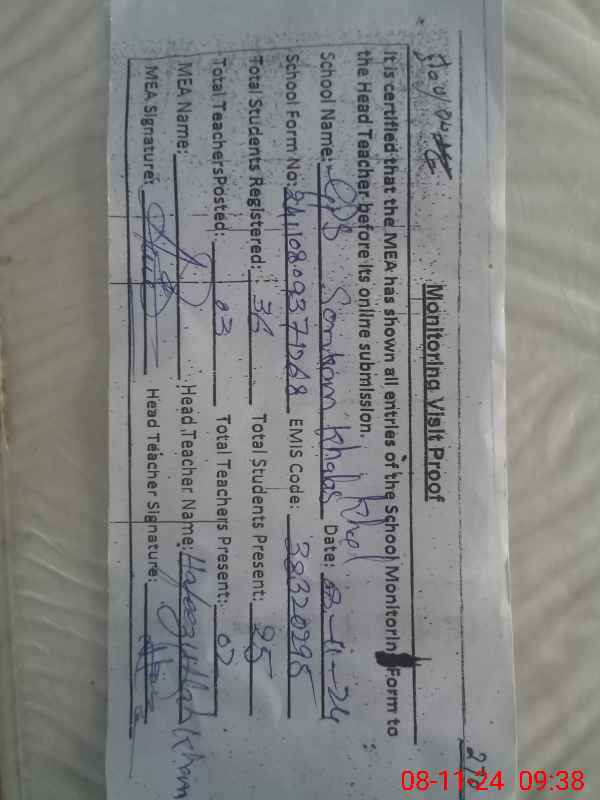 270
Monitoring Visit Proof
It is certified that the MEA has shown all entries of the School Monitorin Form to
the Head Teacher before its online submission.
School Name: GPS Khabas Khel Date: 08-11-24
School Form No: EMIS Code: 38320295
Total Students Registered: 36 Total Students Present: 25
Total TeachersPosted: 03 Total Teachers Present: 02
MEA Name: Head Teacher Name: Hafeez Ullah Khan
MEA Signature: Head Teacher Signature:
08-11-24 09:38